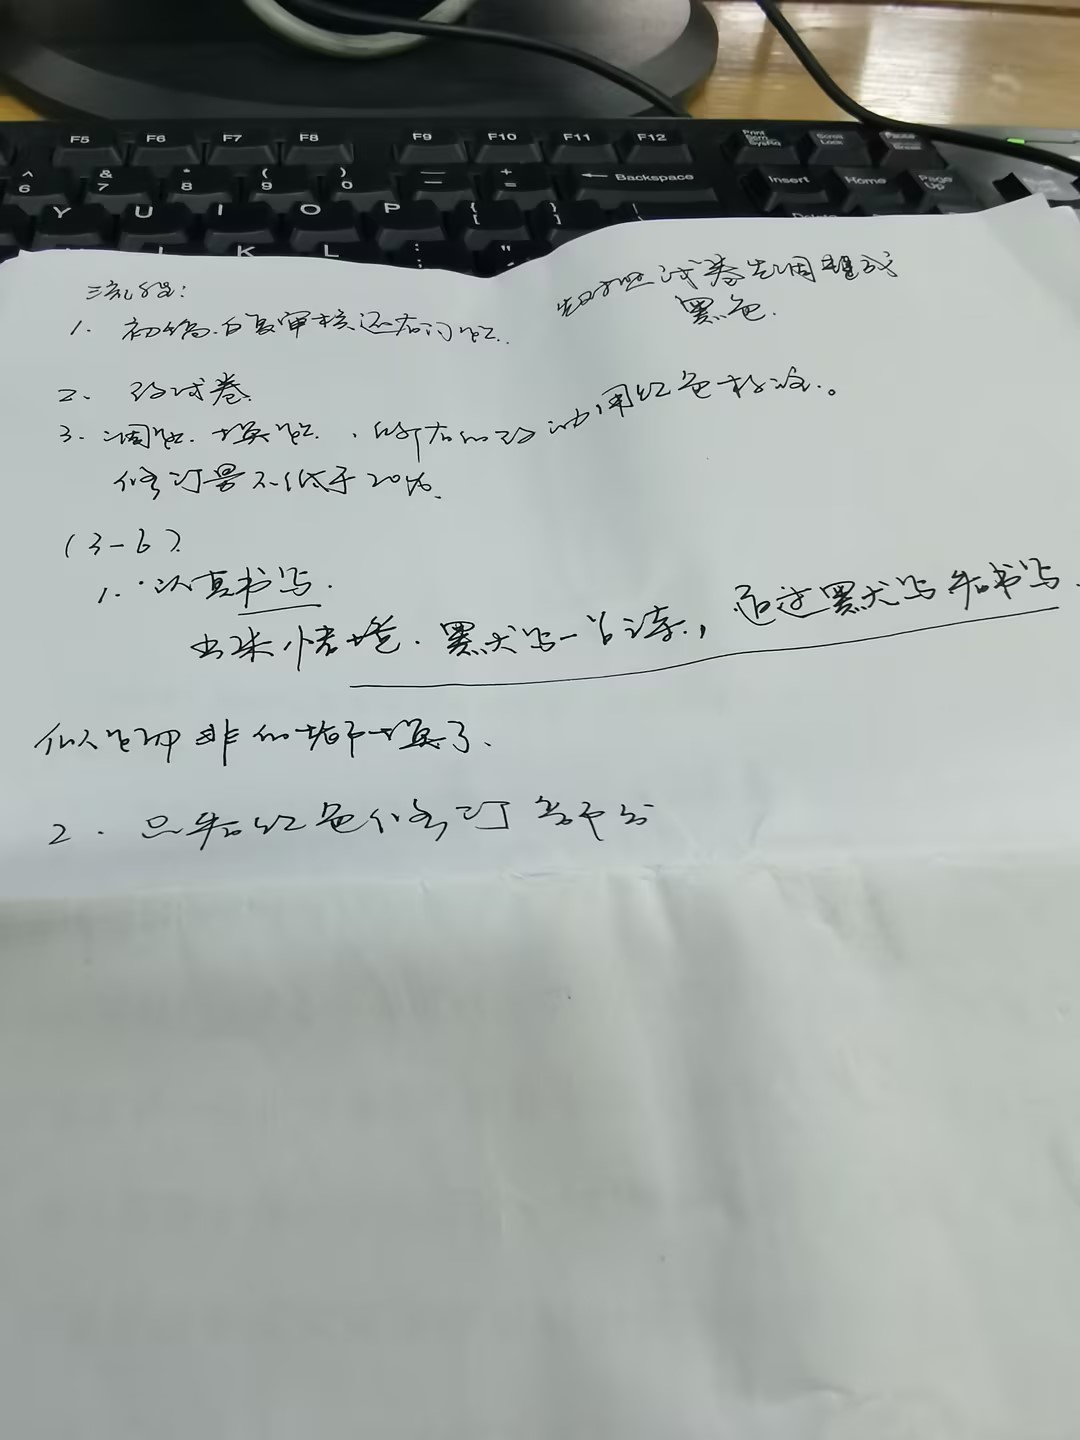 F5 F6 F7 F8 F9 F10 F11 F12 Print Scrn SysRq Scroll Lock Pause Break
^ 6 & 7 * 8 ( 9 ) 0 — - + = Backspace Insert Home Page Up
Y U I O P { [ } ] | Delete
K L : ; "
流程:
1. 初稿.自复审核还有问题.
试卷先调整成
黑色.
2、改试卷.
3.调题.换题.、所有的改动,用红色标注.。
修订量不低于20%.
(3-6).
1.·认真书写.
出来. 默写一首诗., 通过默写考书写.
都换了.
2.只看红色修订部分